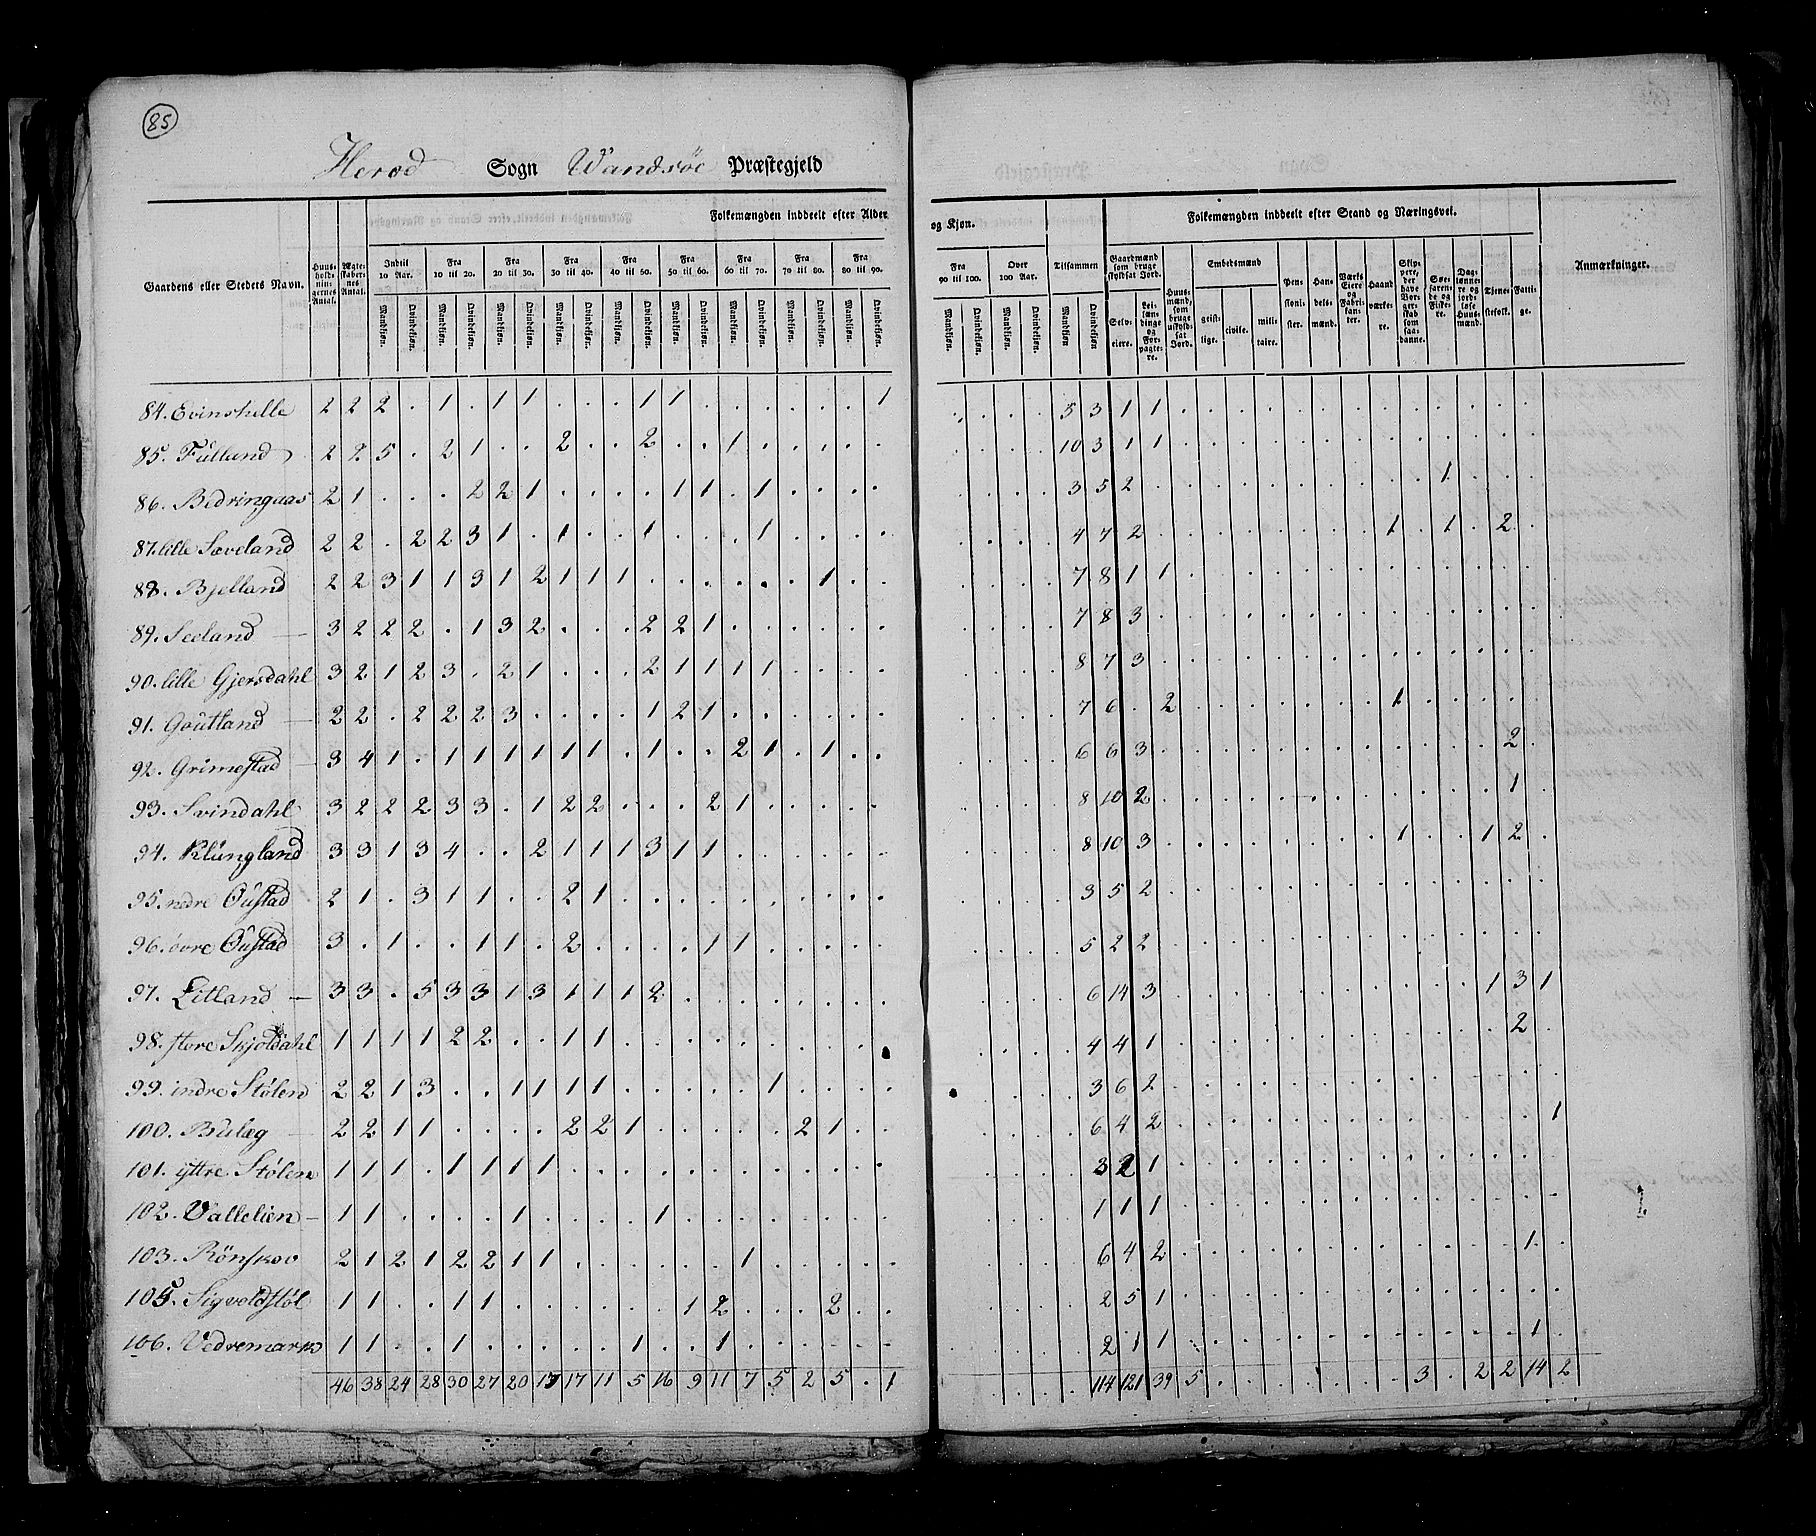 85
Herod Sogn Wandsöe Præstegjeld
Folkemængden inddeelt efter Alder og Kjøn. Folkemængden inddeelt efter Stand og Næringsvei.
Gaardens eller Stedets Navn. Huusholdningernes Antal. Ægteskabernes Antal. Indtil 10 Aar. Fra 10 til 20. Fra 20 til 30. Fra 30 til 40. Fra 40 til 50. Fra 50 til 60. Fra 60 til 70. Fra 70 til 80. Fra 80 til 90. Fra 90 til 100. Over 100 Aar. Tilsammen Gaardmænd som bruge skyldsat Jord. Huusmænd, som bruge uskyldsat Jord. Embedsmænd Pensionister. Handelsmænd. Værks Eiere og Fabrikanter. Haandværkere. Skippere, der have Borgerskab som saadanne. Søefarende og Fiskere. Daglønnere og jordløse Huusmænd. Tjenestefolk. Fattige. Anmærkninger.
Mandkjøn. Qvindekjøn. Mandkjøn. Qvindekjøn. Mandkjøn. Qvindekjøn. Mandkjøn. Qvindekjøn. Mandkjøn. Qvindekjøn. Mandkjøn. Qvindekjøn. Mandkjøn. Qvindekjøn. Mandkjøn. Qvindekjøn. Mandkjøn. Qvindekjøn. Mandkjøn. Qvindekjøn. Mandkjøn. Qvindekjøn. Mandkjøn Qvindekjøn. Selveiere. Leilændinge og Forpagtere. geistlige. civile. militaire.
84. Evinshelle 2 2 2 . 1 . 1 1 . . . 1 1 . . . . . . 1 . . . . 5 3 1 1 . . . . . . . . . . . . .
85. Fuëland 2 2 5 . 2 1 . . 2 . . 2 . . 1 . . . . . . . . . 10 3 1 1 . . . . . . . . . . . . .
86. Bedringaas 2 1 . . . 2 2 1 . . . . 1 1 . 1 . . . . . . . . 3 5 2 . . . . . . . . . . 1 . . .
87. lille Sæveland 2 2 . 2 2 3 1 . 1 . . 1 . . . 1 . . . . . . . . 4 7 2 . . . . . . . . 1 . 1 . 2 .
88. Bjelland 2 2 3 1 1 3 1 2 1 1 1 . . . . . . 1 . . . . . . 7 8 1 1 . . . . . . . . . . . . .
89. Seeland 3 2 2 2 . 1 3 2 . . . 2 2 1 . . . . . . . . . . 7 8 3 . . . . . . . . . . . . . .
90. lille Gjersdahl 3 2 1 2 3 . 2 1 . . . 2 1 1 1 1 . . . . . . . . 8 7 3 . . . . . . . . . . . . . .
91. Goutland 2 2 . 2 2 2 3 . . . . 1 2 1 . . . . . . . . . . 7 6 . 2 . . . . . . . 1 . . . . .
92. Grimestad 3 4 1 . 1 1 1 1 1 1 . 1 . . 2 1 . 1 . . . . . . 6 6 3 . . . . . . . . . . . . 2 .
93. Svindahl 3 2 2 2 3 3 . 1 2 2 . . . 2 1 . . . . . . . . 8 10 2 . . . . . . . . . . . . 1 .
94. Klungland 3 3 1 3 4 . . 2 1 1 1 3 1 1 . . . . . . . . . . 8 10 3 . . . . . . . . 1 . . 1 2 .
95. nedre Oustad 2 1 . 3 1 1 . . 2 1 . . . . . . . . . . . . . . 3 5 2 . . . . . . . . . . . . . .
96. övre Oustad 3 . 1 . . 1 1 . 2 . . . . 1 1 . . . . . . . . . 5 2 2 . . . . . . . . . . . . . .
97. Litland 3 3 . 5 3 3 1 3 1 1 1 2 . . . . . . . . . . . . 6 14 3 . . . . . . . . . . . 1 3 1
98. store Skjoldahl 1 1 1 1 2 2 . . 1 1 . . . . . . . . . . . . . . 4 4 1 . . . . . . . . . . . . 2 .
99. indre Stölen 2 2 1 3 . . 1 1 1 1 . . . . . 1 . . . . . . . . 3 6 2 . . . . . . . . . . . . . .
100. Bulæg 2 2 1 1 . . . . 2 2 1 . . . . . 2 1 . . . . . . 6 4 2 . . . . . . . . . . . . . 1
101. yttre Stölen 1 1 1 . 1 1 1 1 . . . . . . . . . . . . . . . 3 2 1 . . . . . . . . . . . . . .
102. Vallelien 1 1 . . . . 1 . . . . 1 . . . . . . . . . . . . 1 1 1 . . . . . . . . . . . . . . 1.
103. Rönskov 2 1 2 1 2 2 1 1 . . . . . . 1 . . . . . . . . . 6 4 2 . . . . . . . . . . . . 1 .
105. Sigvoldstöl 1 1 . . 1 1 . . . . . . 1 2 . . . 2 . . . . . . 2 5 1 . . . . . . . . . . . . . .
106. Vedremark 1 1 . . 1 . . . . . 1 . . 1 . . . . . . . . . . 2 1 1 . . . . . . . . . . . . 1 .
46 38 24 28 30 27 20 17 17 11 5 16 9 11 7 5 2 5 . 1 . . . . 114 121 39 5 . . . . . . . 3 . 2 2 14 2